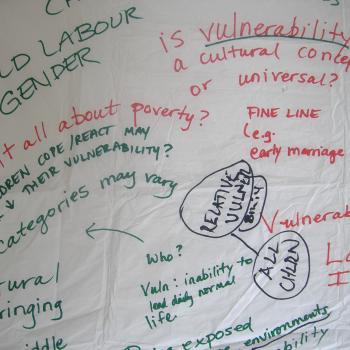 CH
LD LABOUR
GENDER
is vulnerability
a cultural conce
or universal?
it all about poverty?
FINE LINE
(e.g.
early marriage
DREN COPE/REACT MAY
THEIR VULNERABILITY?
categories may vary
RELATIVE
VULNER
ability
Vulnerab
ALL
CHLDN
Who?
Vuln: inability to
lead daily normal
life.
L
I
ural
ringing
iddle
exposed
environments
bility